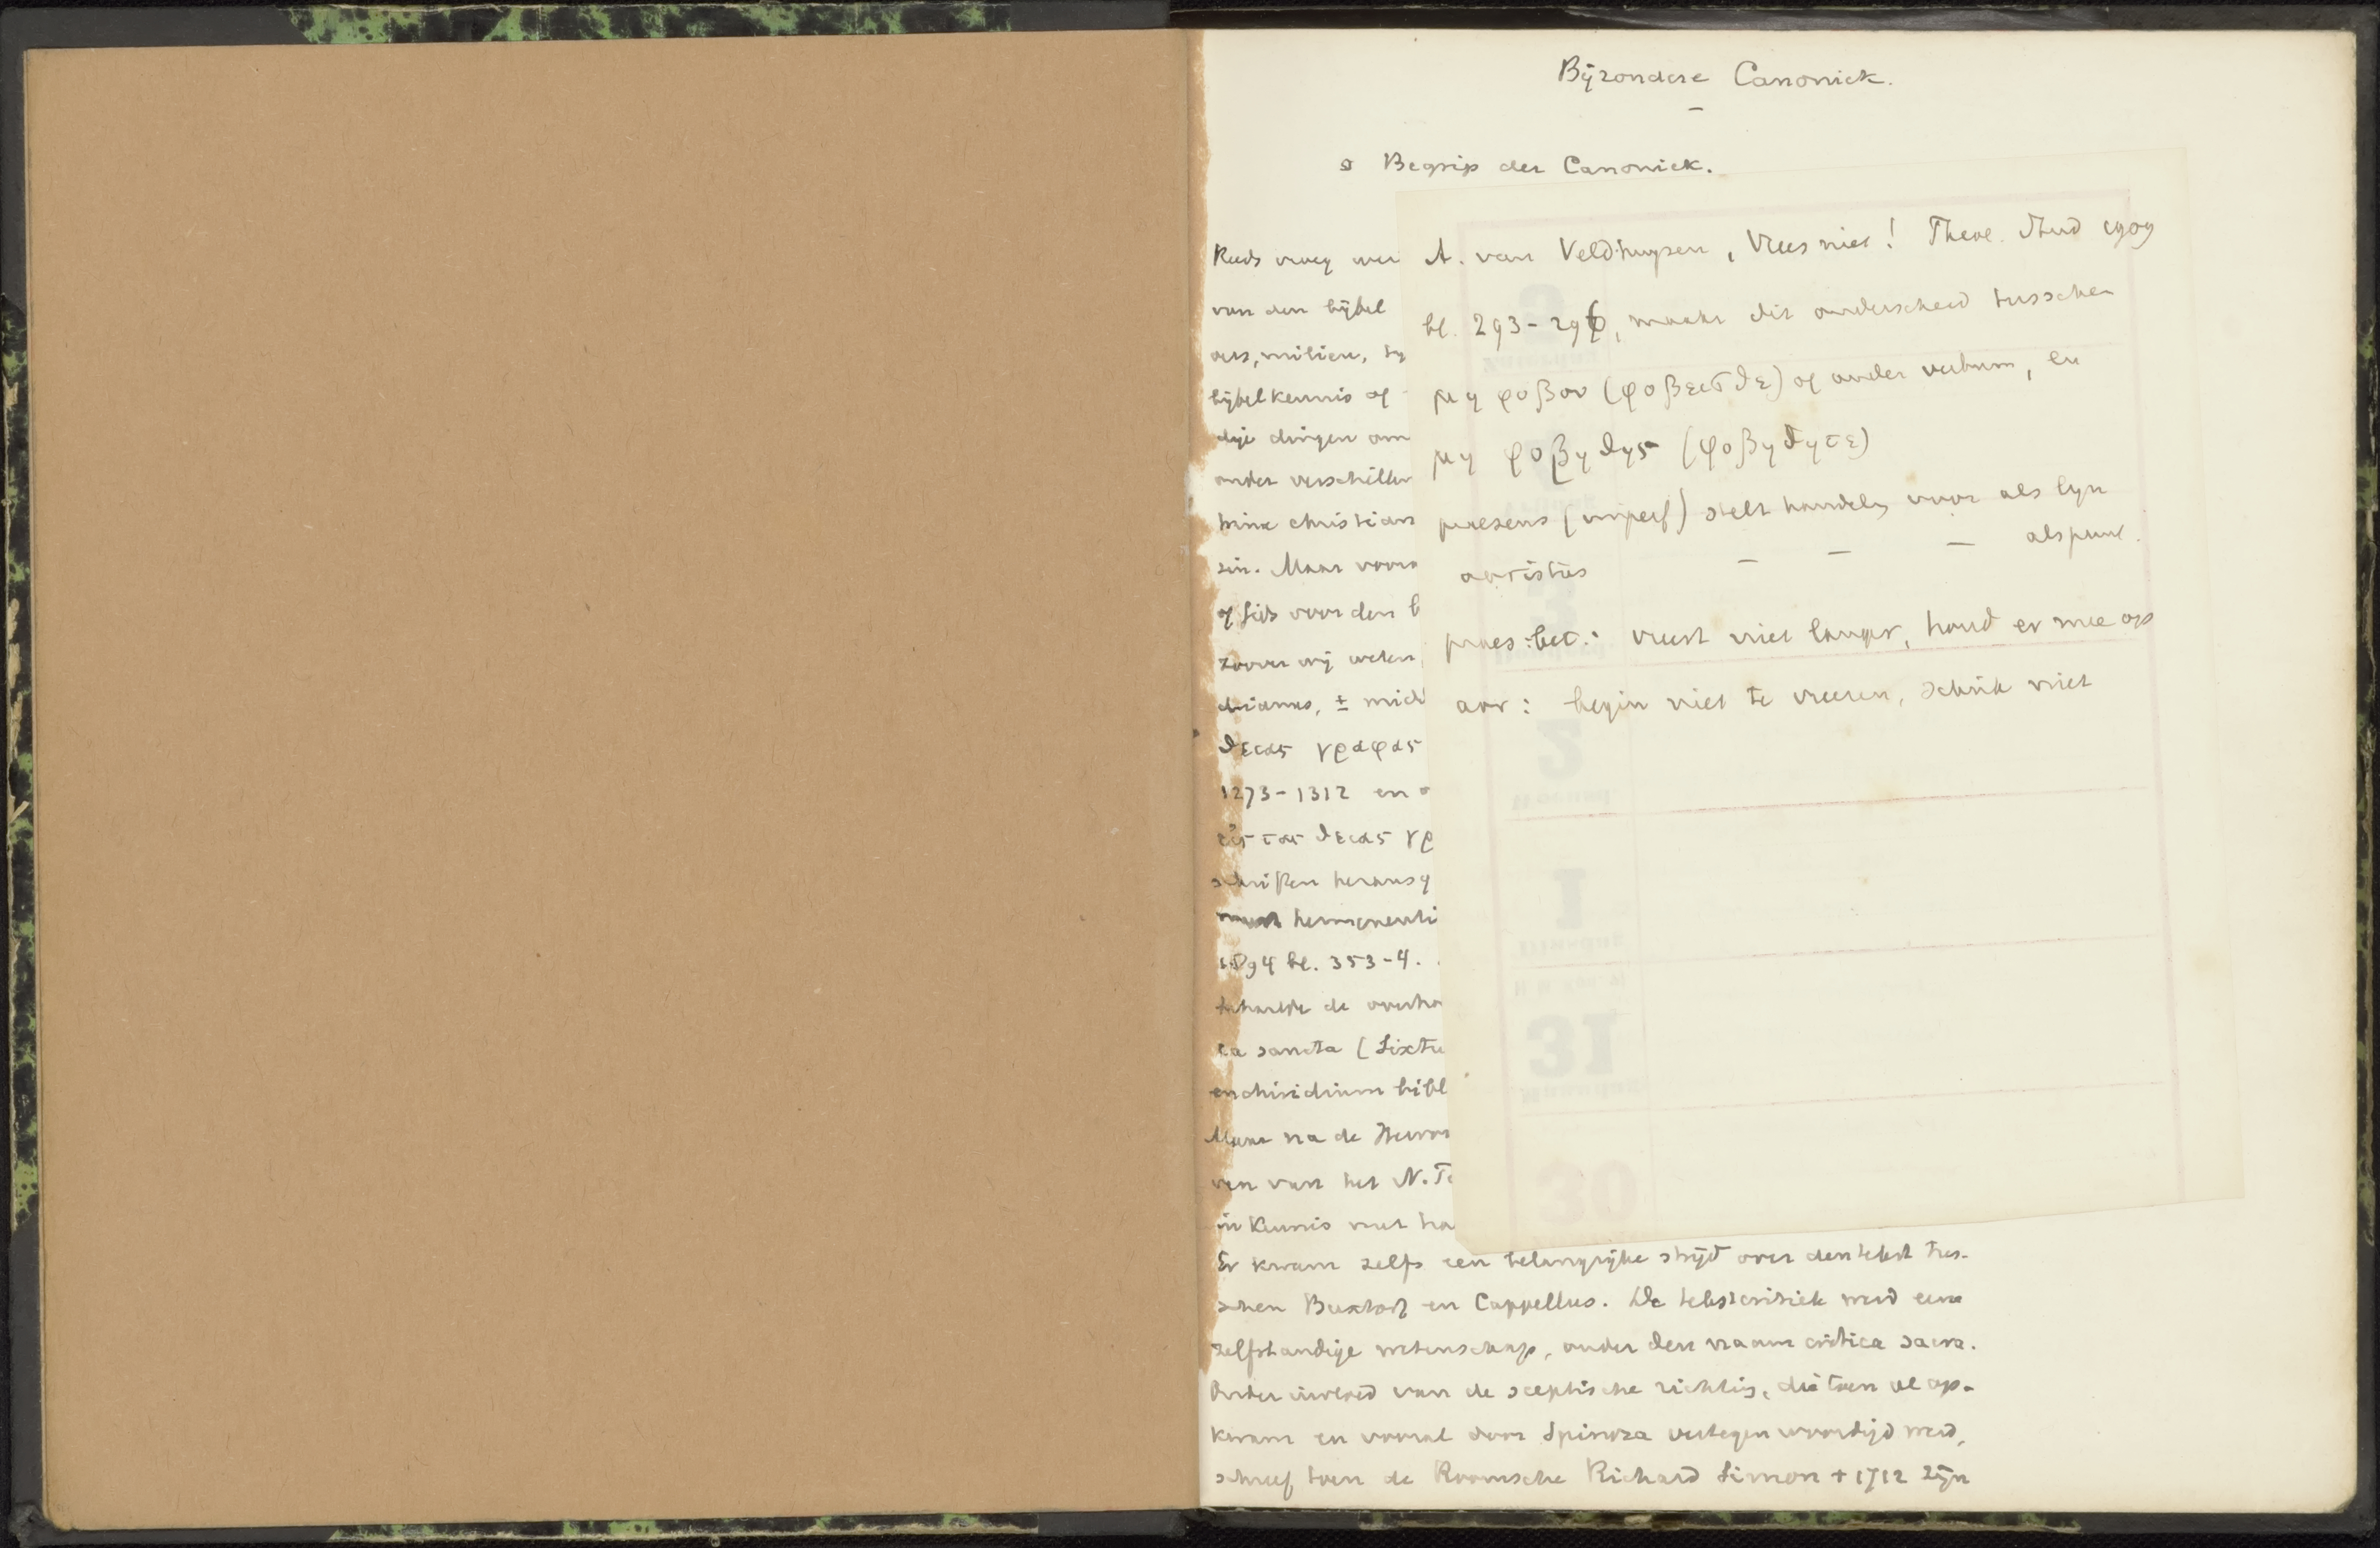 Bijzondere Canoniek.
§ Begrip der Canoniek.
A. van Veldhuyzen, Vrees niet! Theol. Stud 1909
bl. 293-296, maakt dit onderscheid tusschen
μη φοβου (φοβεισθε) of ander verbum, en
μη φοβηθης (φοβηθητε)
praesens (imperf) stelt handeling voor als lijn
aoristus — — — als punt.
praes: bet.: vreest niet langer, houd er mee op
aor: begin niet te vreezen, schrik niet
Reeds vroeg
van den bijbel
milieu,
bijbelkennis of
dingen
onder
christian
zin. Maar
of gids voor den
zoover wij weten,
drianus, ±
θειας γραφας
1273-1312 en
εις τας θειας γρ
schriften
1894 bl. 353-4.
de
ca sancta (Sixtu
enchiridium bibl
Maar na de
ven van het N.T
in kennis met ha
Er kwam zelfs een belangrijke strijd over den tekst tus-
schen Buxtorf en Cappellus. De tekstcritiek werd eene
zelfstandige wetenschap, onder den naam critica sacra.
Onder invloed van de sceptische richting, die toen al op-
kwam en vooral door Spinoza vertegenwoordigd werd,
schreef toen de Roomsche Richard Simon † 1712 zijn